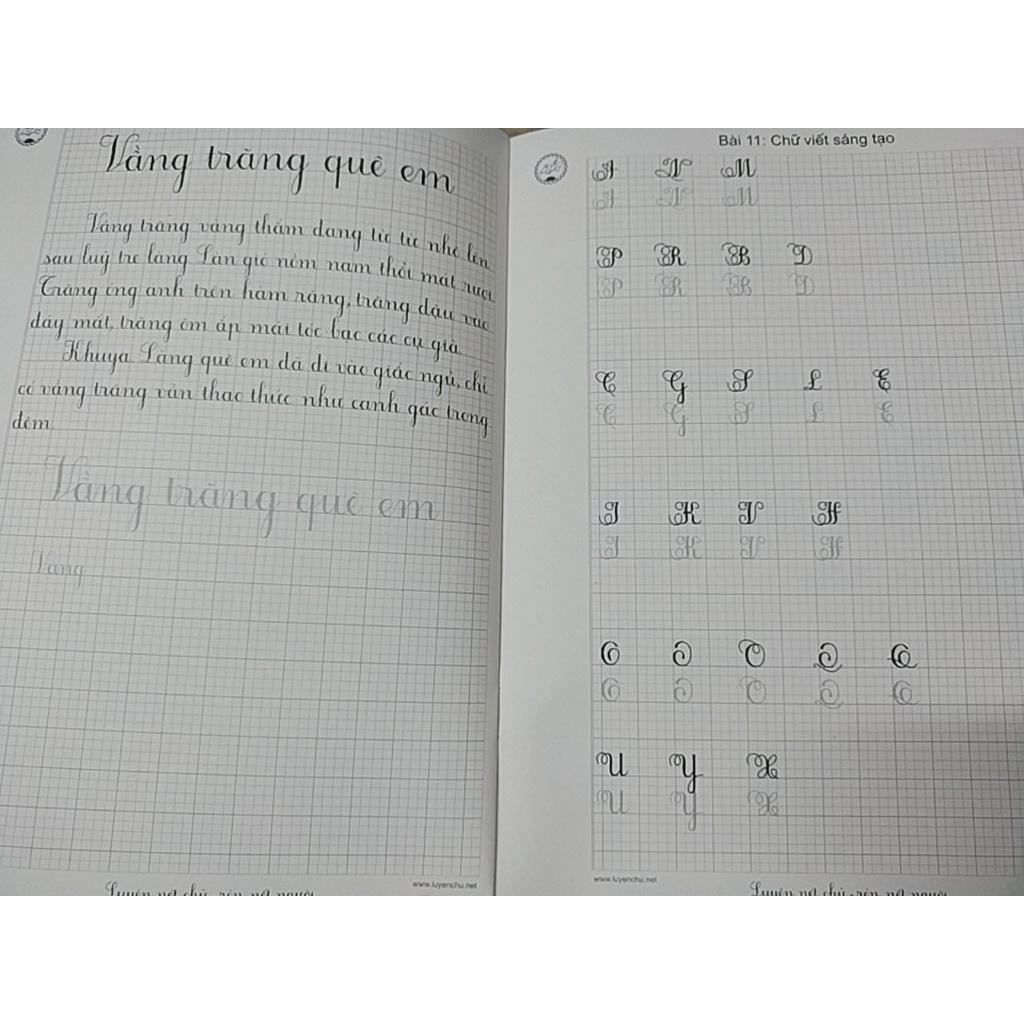 Vầng trăng quê em
Vầng trăng vàng thắm đang từ từ nhô lên
sau luỹ tre làng. Làn gió nồm nam thổi mát rượi.
Trăng óng ánh trên hàm răng, trăng đậu vào
đáy mắt, trăng ôm ấp mái tóc bạc các cụ già.
Khuya. Làng quê em đã đi vào giấc ngủ, chỉ
có vầng trăng vẫn thao thức như canh gác trong
đêm.
Vầng trăng quê em
Vầng
www.luyenchu.net
Luyện nét chữ, rèn nết người
Bài 11: Chữ viết sáng tạo
A N M
A N M
P R B D
P R B D
C G S L E
C G S L E
I K V H
I K V H
O O O Q Q
O O O Q Q
U Y X
U Y X
www.luyenchu.net
Luyện nét chữ, rèn nết người